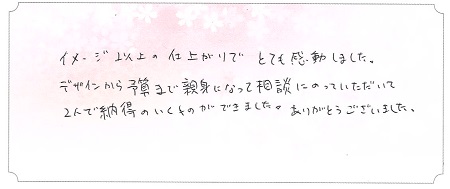 イメージ以上の仕上がりで とても感動しました。
デザインから予算まで親身になって相談にのっていただいて
2人で納得のいくものができました。ありがとうございました。